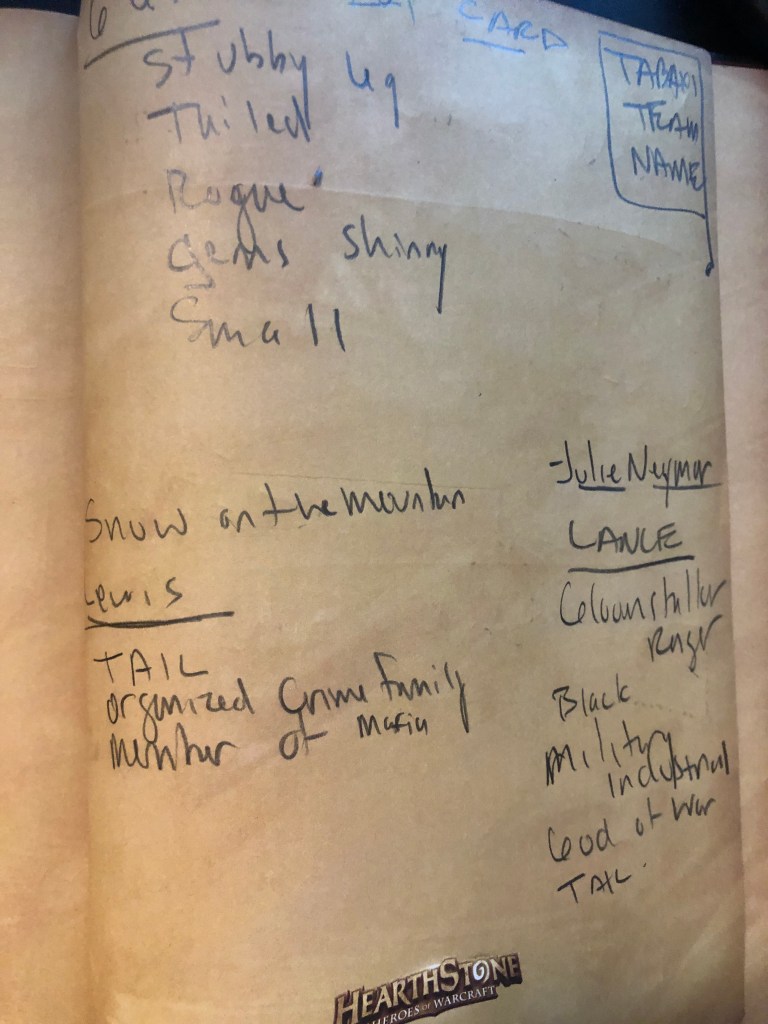 CARD
Stubby leg
Tailed
Rogue
Gems Shinny
Small
TABAXI
TEAM
NAME
Snow on the mountain
Lewis
TAIL
organized Crime Family
member of Mafia
Julie Neymar
LANCE
Black
Military
industrial
God of War
TAIL
HEARTHSTONE
HEROES OF WARCRAFT